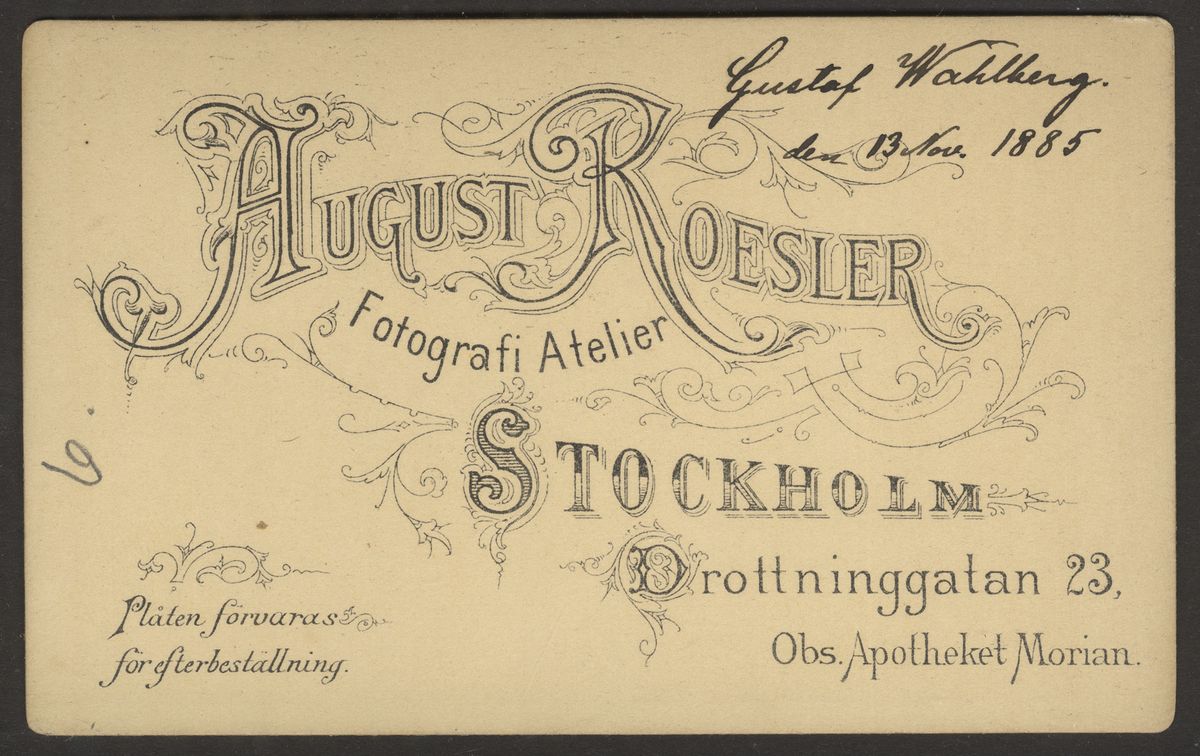 Gustaf Wahlberg.
den 13 Nov. 1885
August Roesler
Fotografi Atelier
Stockholm
Drottninggatan 23,
Obs. Apotheket Morian.
Plåten förvaras
för efterbeställning.
6.